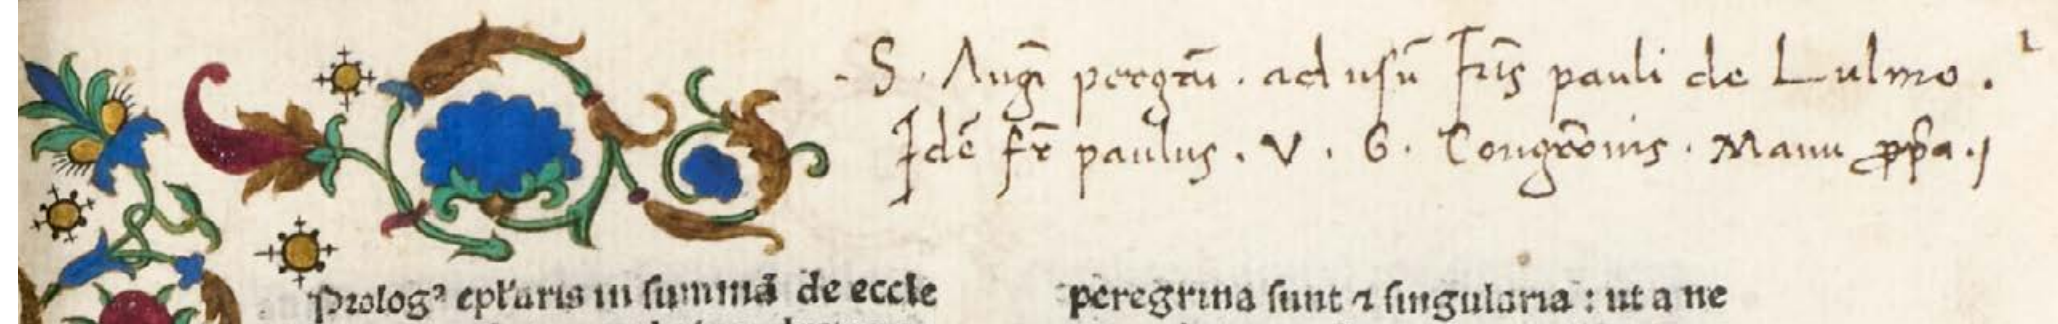 - S. Augĩ pergm̃. ad usũ Fr̃is pauli de Lulmo. 1
Idẽ fr̃ paulus. V. G. Congrõnis. Manu ꝓp̃a.
Prologꝰ epl'aris in summã de eccle
peregrina sunt ⁊ singularia : ut a ne